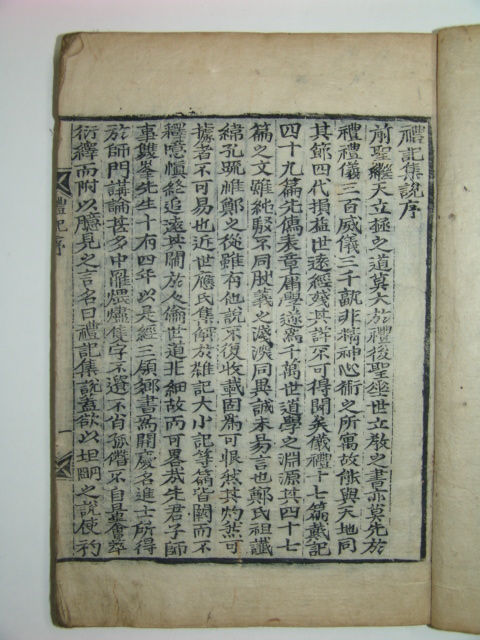 禮記集說序
前聖繼天立極之道莫大於禮後聖垂世立敎之書亦莫先於
禮禮儀三百威儀三千孰非精神心術之所寓故能與天地同
其節四代損益世遠經殘其詳不可得聞矣儀禮十七篇戴記
四十九篇先儒表章庸學遂爲千萬世道學之淵源其四十七
篇之文雖純駁不同然義之淺深同異誠未易言也鄭氏祖讖
緯孔疏惟鄭之從雖有他說不復收載固爲可恨然其灼然可
據者不可易也近世應氏集解於雜記大小記等篇皆闕而不
釋噫愼終追遠其關於人倫世道非細故而可略哉先君子師
事雙峯先生十有四年以是經三領鄕書爲開慶名進士所得
於師門講論甚多中罹煨燼隻字不遺不肖孤僭不自量會萃
衍繹而附以臆見之言名曰禮記集說蓋欲以坦明之說使初
禮記序
一